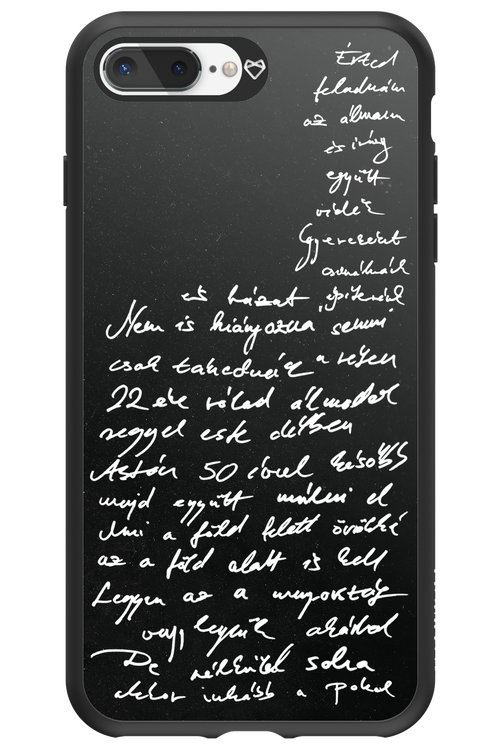 Érted
feladnám
az álmaim
és így
együtt
vidék
Gyerekeket
csinálnánk
és házat építenénk
Nem is hiányozna semmi
csak tenednék a telem
22 éve rólad álmodok
reggel este délben
Aztán 50 évvel később
majd együtt múlni el
Ami a föld felett örökké
az a föld alatt is kell
Legyen az a mennyország
vagy legyünk akárhol
De nélküled soha
akkor inkább a pokol